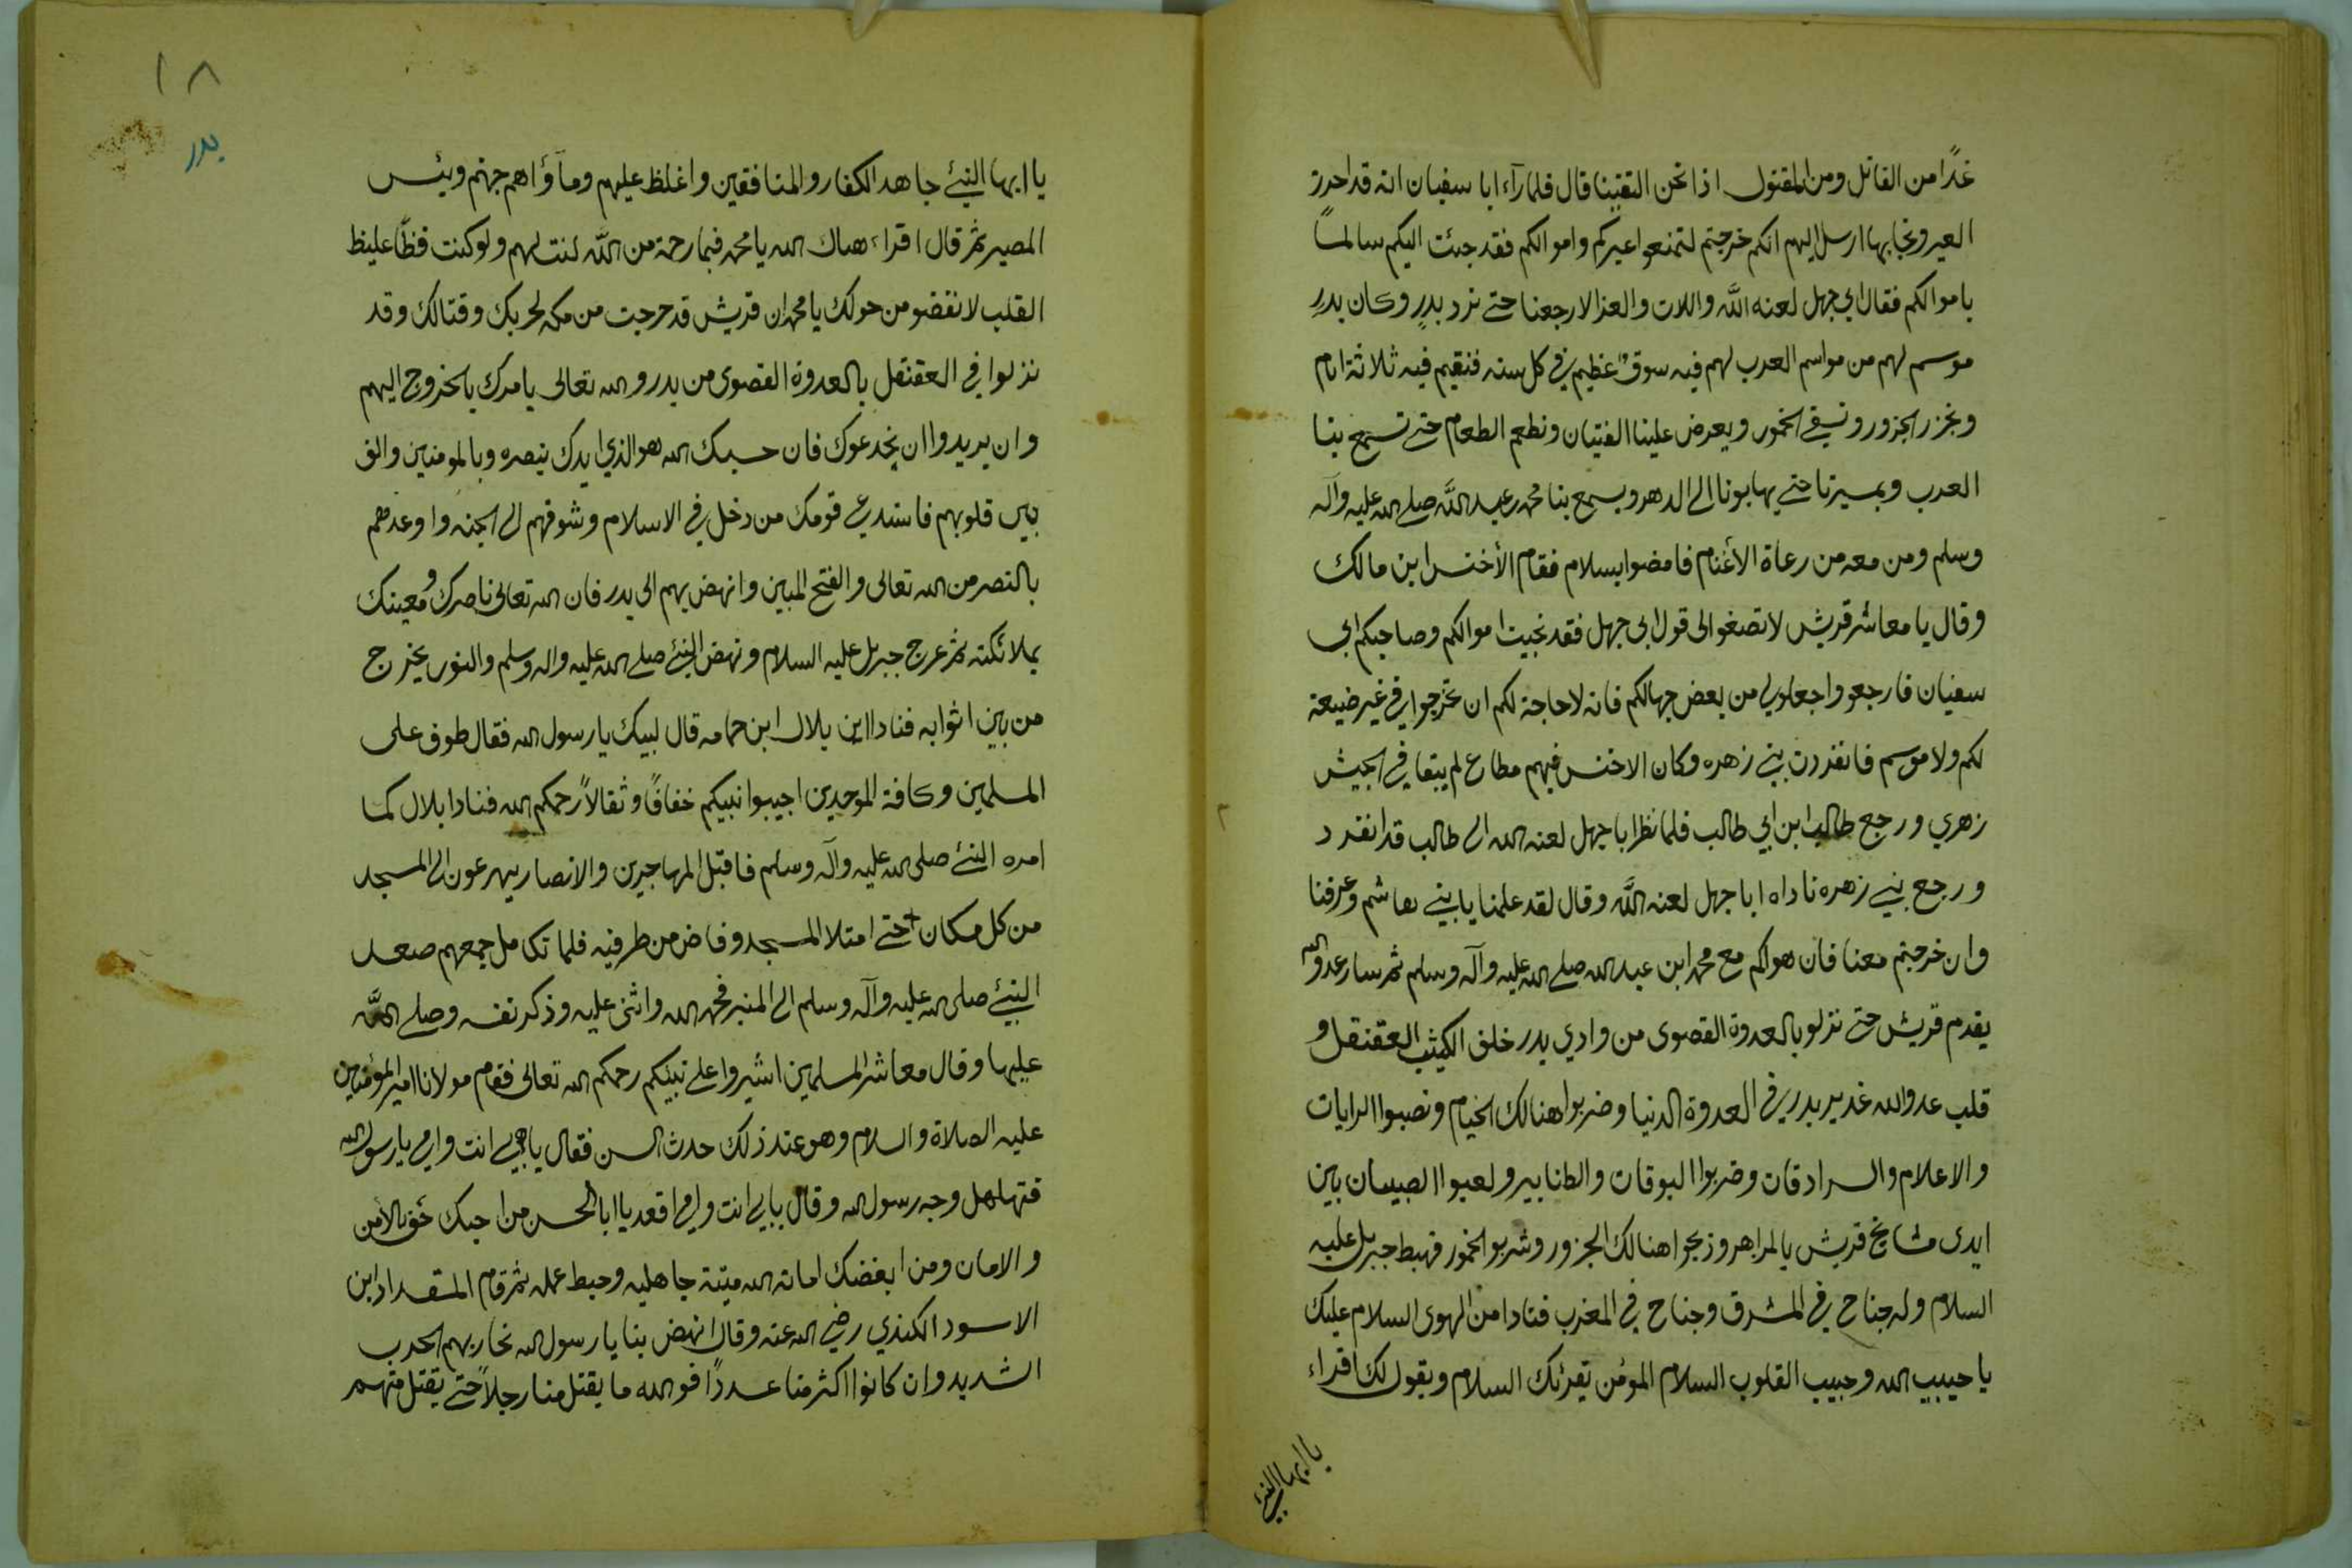 غدًا من القاتل ومن المقتول اذا نحن التقينا قال فلما رآء ابا سفيان انه قد احرز
العير ونجا بها ارسل اليهم انكم خرجتم لتمنعوا عيركم واموالكم فقد جئت اليكم سالمًا
باموالكم فقال ابي جهل لعنه الله واللات والعزا لا رجعنا حتى نرد بدرٍ وكان بدرٍ
موسم لهم من مواسم العرب لهم فيه سوقٌ عظيم في كل سنه فنقيم فيه ثلاثة ايام
وننحر الجزور ونسقي الخمور ويعرض علينا الفتيان ونطعم الطعام حتى تسمع بنا
العرب وبمسيرنا حتى يهابونا الى الدهر ويسمع بنا محمد بن عبد الله صلى الله عليه وآله
وسلم ومن معه من رعاة الأغنام فامضوا بسلام فقام الأخنس ابن مالك
وقال يا معاشر قريش لا تصغوا الى قول ابي جهل فقد نجيت اموالكم وصاحبكم ابي
سفيان فارجعو واجعلوا لي من بعض جهالكم فانه لا حاجة لكم ان تخرجوا في غير ضيعة
لكم ولا موسم فانفردت بني زهره وكان الاخنس فيهم مطاع لم يبقا في الجيش
زهري ورجع طالب ابن ابي طالب فلما نظر ابا جهل لعنه الله الى طالب قد انفرد
ورجع بني زهره ناداه ابا جهل لعنه الله وقال لقد علمنا يا بني هاشم وعرفنا
وان خرجتم معنا فان هواكم مع محمد ابن عبد الله صلى الله عليه وآله وسلم ثم سار عدو الله
يقدم قريش حتى نزلو بالعدوة القصوى من وادي بدر خلف الكثيب العقنقل و
قلب عدو الله غدير بدر في العدوة الدنيا وضربوا هنالك الخيام ونصبوا الرايات
والاعلام والسرادقات وضربوا البوقات والطنابير ولعبوا الصبيان بين
ايدى مشايخ قريش بالمزاهر وذبحوا هنالك الجزور وشربو الخمور فهبط جبريل عليه
السلام وله جناح في المشرق وجناح في المغرب فنادا من الهوى السلام عليك
يا حبيب الله وحبيب القلوب السلام المؤمن يقرئك السلام ويقول لك اقراء
يا ايها النبيّ
١٨
بدر
يا ايها النبيّ جاهد الكفار والمنافقين واغلظ عليهم ومأواهم جهنم وبئس
المصير ثم قال اقراء هناك الله يا محمد فبما رحمة من الله لنت لهم ولو كنت فظًّا غليظ
القلب لانفضو من حولك يا محمد ان قريش قد خرجت من مكه لحربك وقتالك وقد
نزلوا في العقنقل بالعدوة القصوى من بدر والله تعالى يامرك بالخروج اليهم
وان يريدوا ان يخدعوك فان حسبك الله هو الذي ايدك بنصره وبالمومنين والف
بين قلوبهم فاستدعي قومك من دخل في الاسلام وشوقهم الى الجنه واوعدهم
بالنصر من الله تعالى والفتح المبين وانهض بهم الى بدر فان الله تعالى ناصرك ومعينك
بملائكته ثم عرج جبريل عليه السلام ونهض النبيّ صلى الله عليه واله وسلم والنور يخرج
من بين اثوابه فنادا اين بلال ابن حمامه قال لبيك يا رسول الله فقال طوف على
المسلمين وكافة الموحدين اجيبوا نبيكم خفافًا وثقالاً رحمكم الله فنادا بلال كما
امره النبيّ صلى الله عليه وآله وسلم فاقبل المهاجرين والانصار يهرعون الى المسجد
من كل مكان حتى امتلا المسجد وفاض من طرفيه فلما تكامل جمعهم صعد
النبيّ صلى الله عليه وآله وسلم الى المنبر فحمد الله واثنى عليه وذكر نفسه وصلى الله
عليها وقال معاشر المسلمين اشيروا على نبيّكم رحمكم الله تعالى فقام مولانا امير المؤمنين
عليه الصلاة والسلام وهو عند ذلك حدث السن فقال بابي انت وامي يا رسول الله
فتهلهل وجه رسول الله وقال بابي انت وامي اقعد يا ابا الحسن من احبك حُق بالأمن
والامان ومن ابغضك اماته الله ميتة جاهليه وحبط عمله ثم قام المقداد ابن
الاسود الكندي رضي الله عنه وقال انهض بنا يا رسول الله نحاربهم الحرب
الشديد وان كانوا اكثر منا عددًا فو الله ما يقتل منا رجلاً حتى يقتل منهم